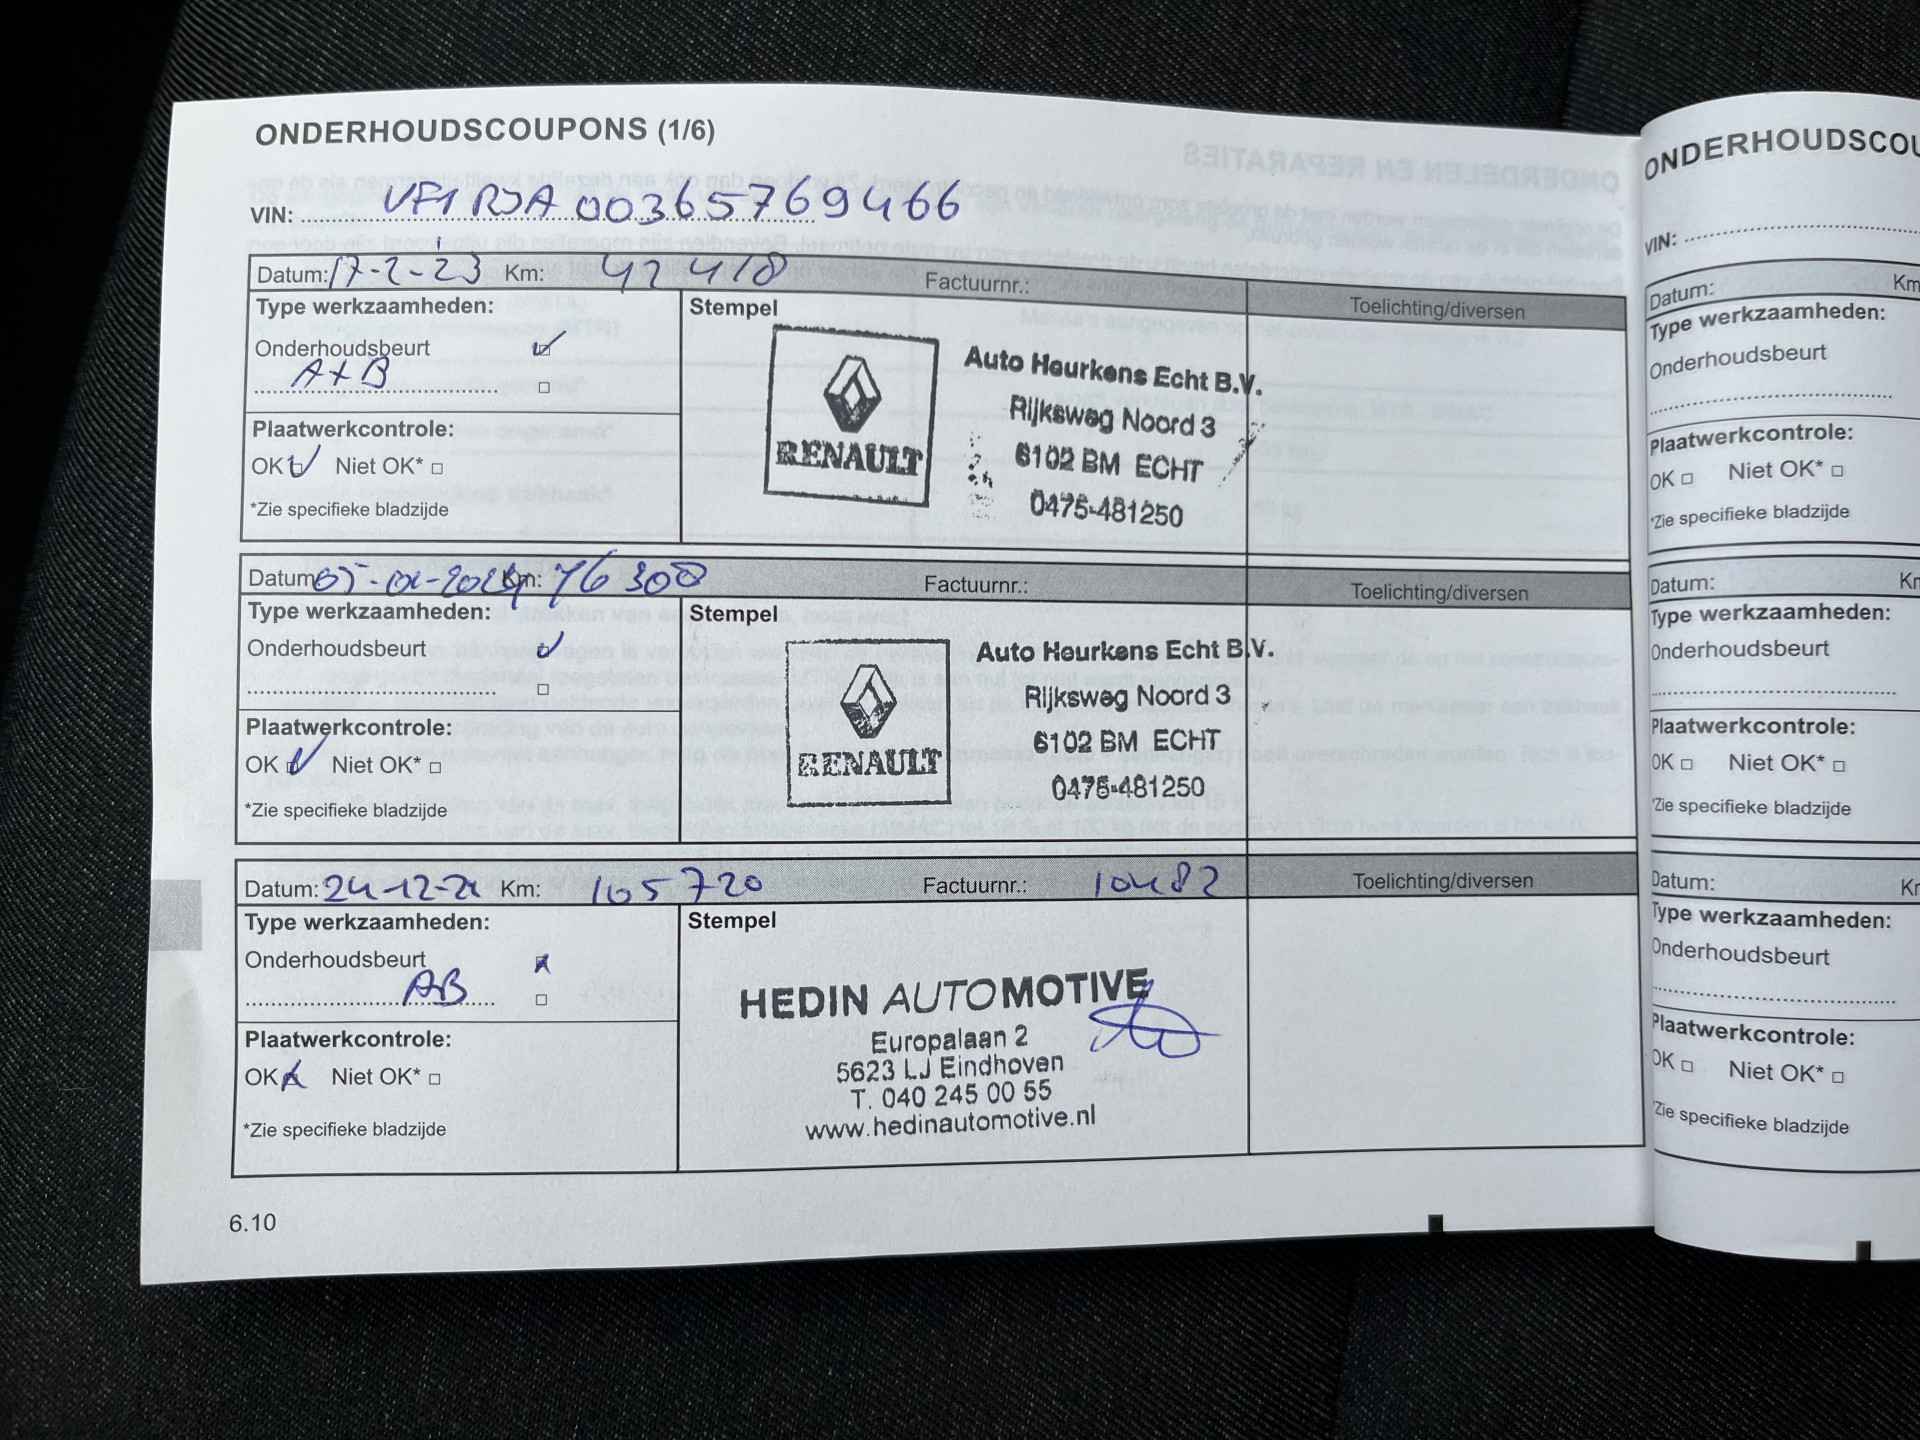 ONDERHOUDSCOUPONS (1/6)
VIN: VF1RJA00365769466
Datum: 17-2-23 Km: 42418 Factuurnr.: Toelichting/diversen
Type werkzaamheden: Stempel
Onderhoudsbeurt
A+B
Plaatwerkcontrole:
OK Niet OK*
*Zie specifieke bladzijde
RENAULT
Auto Heurkens Echt B.V.
Rijksweg Noord 3
6102 BM ECHT
0475-481250
Datum: Km: 76300 Factuurnr.: Toelichting/diversen
Type werkzaamheden: Stempel
Onderhoudsbeurt
Plaatwerkcontrole:
OK Niet OK*
*Zie specifieke bladzijde
RENAULT
Auto Heurkens Echt B.V.
Rijksweg Noord 3
6102 BM ECHT
0475-481250
Datum: 24-12-24 Km: 105720 Factuurnr.: 10482 Toelichting/diversen
Type werkzaamheden: Stempel
Onderhoudsbeurt
AB
Plaatwerkcontrole:
OK Niet OK*
*Zie specifieke bladzijde
HEDIN AUTOMOTIVE
Europalaan 2
5623 LJ Eindhoven
T. 040 245 00 55
www.hedinautomotive.nl
6.10
ONDERHOUDSCOU
VIN:
Datum: Km
Type werkzaamheden:
Onderhoudsbeurt
Plaatwerkcontrole:
OK Niet OK*
*Zie specifieke bladzijde
Datum: Kr
Type werkzaamheden:
Onderhoudsbeurt
Plaatwerkcontrole:
OK Niet OK*
*Zie specifieke bladzijde
Datum: Kr
Type werkzaamheden:
Onderhoudsbeurt
Plaatwerkcontrole:
OK Niet OK*
*Zie specifieke bladzijde